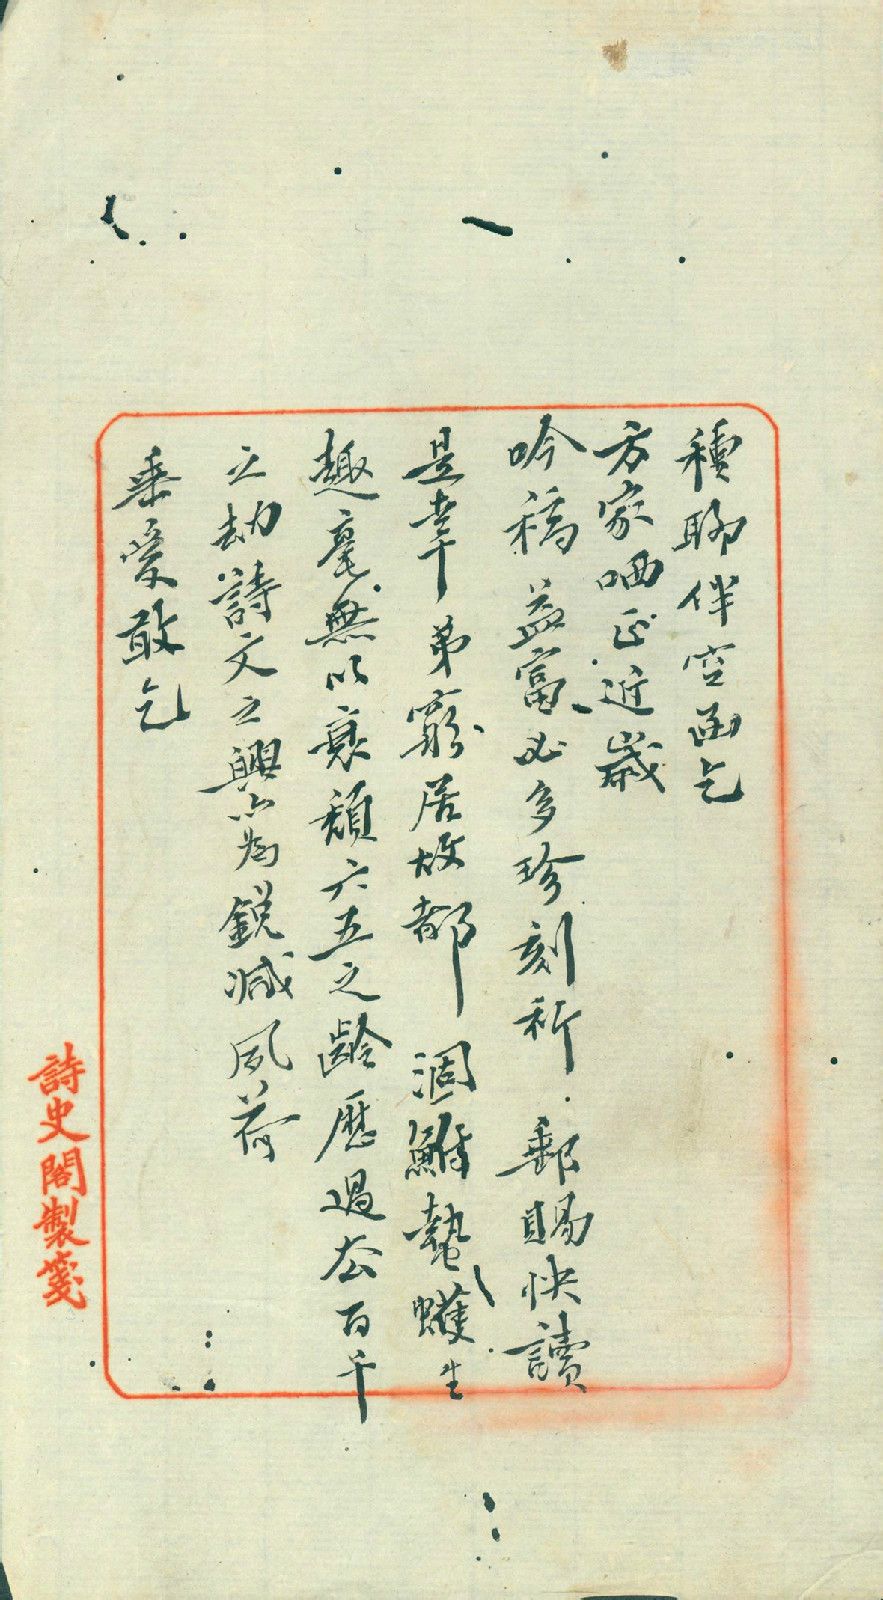 種聊伴空函乞
方家哂正近歲
吟稿益富必多珍刻祈郵賜快讀
是幸弟窮居故都涸鮒蟄蠖生
趣毫無以衰頹六五之齡歷過百千
之劫詩文之興亦為銳減夙荷
垂愛敢乞
詩史閣製箋